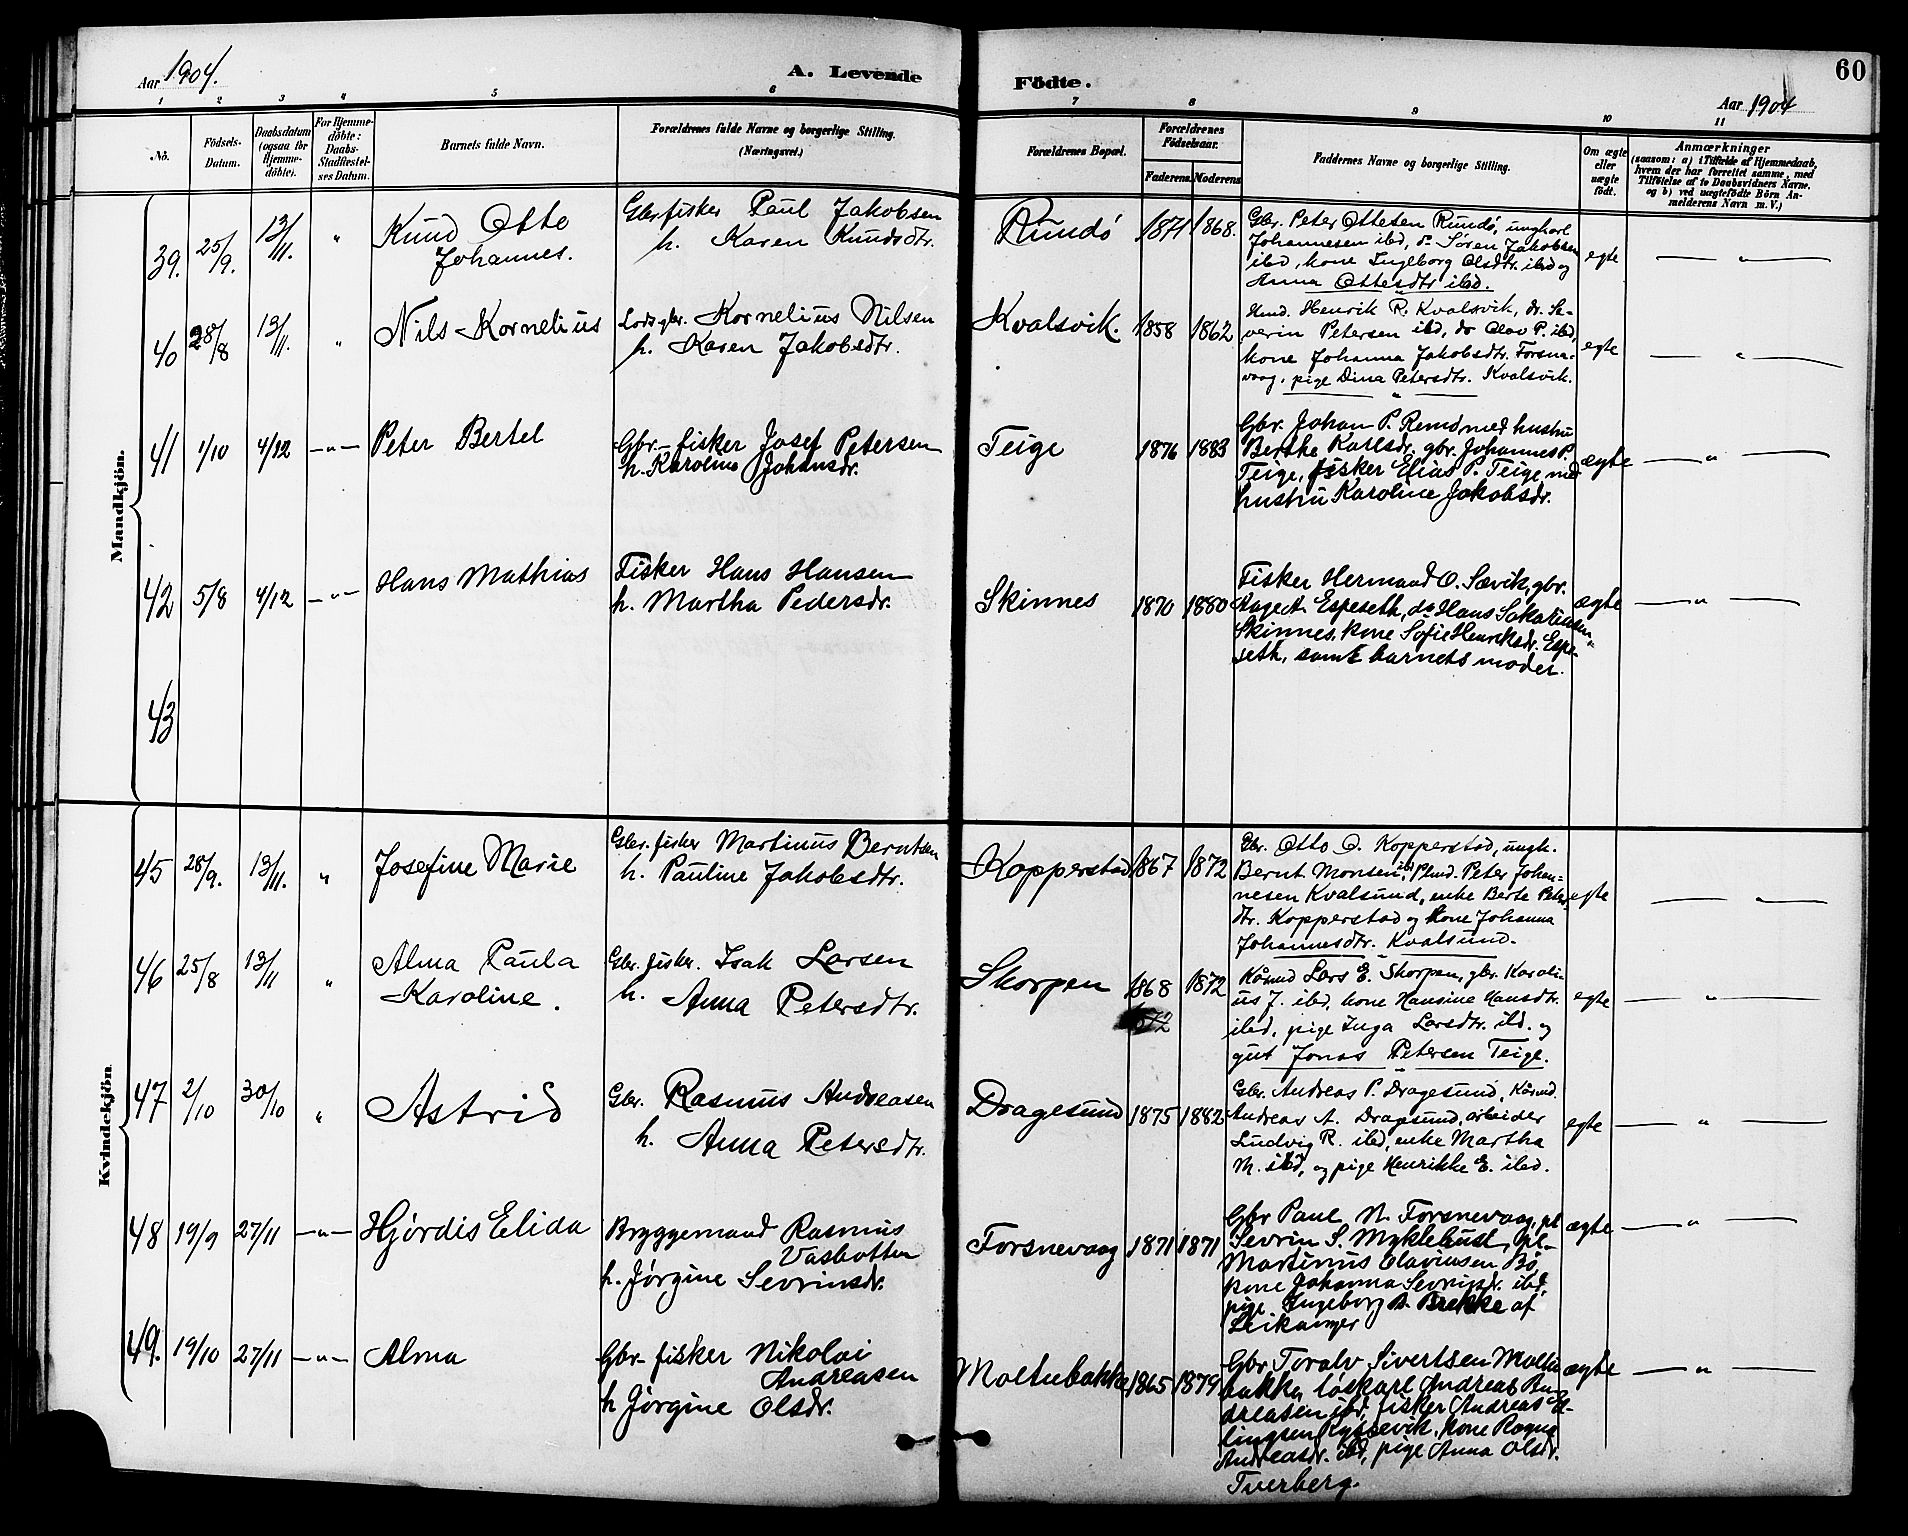 Aar 1904.
A. Levende Födte.
60
Aar 1904
1 2 3 4 5 6 7 8 9 10 11
No.
Födsels-
Datum.
Daabsdatum
(ogsaa for
Hjemme-
döbte).
For Hjemme-
döbte:
Daabs-
Stadfæstel-
ses Datum.
Barnets fulde Navn.
Forældrenes fulde Navne og borgerlige Stilling.
(Næringsvei.)
Forældrenes Bopæl.
Forældrenes
Födselsaar.
Faderens. Moderens.
Faddernes Navne og borgerlige Stilling.
Om ægte
eller
uægte
födt.
Anmærkninger
(saasom: a) i Tilfælde af Hjemmedaab,
hvem der har forrettet samme, med
Tilföielse af to Daabsvidners Navne.
og b) ved uægtefödte Börn An-
melderens Navn m. V.)
Mandkjön.
39. 25/9. 13/11. „ Knud Otto
Johannes.
Gbr fisker Paul Jakobsen
h. Karen Knudsdtr.
Rundö 1871 1868.
Gbr. Peter Ottesen Rundö, ungkarl
Johannesen ibd, do Sören Jakobsen
ibd, kone Ingeborg Olsdtr. ibd og
Anna Ottesdtr ibd.
egte — „ —
40 28/8 13/11. „ Nils Kornelius
Lods gbr. Kornelius Nilsen
h. Karen Jakobsdtr.
Kvalsvik. 1858 1862
Kmd. Henrik R. Kvalsvik, do. Se-
verin Petersen ibd, do Olav P. ibd,
kone Johanna Jakobsdtr. Forsne-
vaag, pige Dina Petersdtr. Kvalsvik.
egte — „ —
41 1/10 4/12 —„— Peter Bertel
Gbr- fisker Josef Petersen
h. Karoline Johansdr.
Teige 1876 1883
Gbr. Johan P. Remö med hustru
Berthe Karlsdr, gbr. Johannes P.
Teige, fisker Elias P. Teige med
hustru Karoline Jakobsdr.
ægte — „ —
42 5/8 4/12 —„— Hans Mathias
Fisker Hans Hansen
h. Martha Pedersdr.
Skinnes 1870 1880
Fisker Hermand O. Sævik, gbr.
Aage A. Espeseth, do Hans Sakariassen
Skinnes, kone Sofie Henriksdr. Espe-
seth, samt barnets moder.
ægte — „ —
43
Kvindekjön.
45 28/9. 13/11. „ Josefine Marie
Gbr. fisker Martinus Berntsen
h. Pauline Jakobsdtr.
Kopperstad 1867 1872
Gbr. Otto O. Kopperstad, ungk.
Bernt Monsen ibd, Kmd. Peter Johan-
nesen Kvalsund, enke Berte Peters-
dtr. Kopperstad og kone Johanna
Johannesdtr. Kvalsund.
egte — „ —
46 25/8 13/11 „ Alma Paula
Karoline.
Gbr. fisker. Isak Larsen
h. Anna Petersdtr.
Skorpen 1868 1872
Kårmd Lars E. Skorpen, gbr. Karoli-
us J. ibd, kone Hansine Hansdtr.
ibd, pige Inga Larsdtr. ibd. og
gut Jonas Petersen Teige.
egte — „ —
47 2/10 30/10 „ Astrid
Gbr. Rasmus Andreasen
h. Anna Petersdtr.
Dragesund 1875 1882
Gbr. Andreas P. Dragesund, Kårmd.
Andreas A. Dragsund, arbeider
Ludvig R. ibd, enke Martha
M. ibd, og pige Henrikke E. ibd.
egte — „ —
48 19/9 27/11 —„— Hjørdis Elida
Bryggemand Rasmus
Vasbotten
h. Jørgine Sevrinsdr.
Forsnevaag 1871 1871
Gbr Paul N. Forsnevaag, pl
Sevrin S. Myklebust, gbr-
Martinus Olaviusen Bö,
kone Johanna Sevrinsdr. ibd,
pige Ingeborg A. Brekke af
Leikanger
ægte — „ —
49. 19/10 27/11 —„— Alma
Gbr- fisker Nikolai
Andreasen
h Jørgine Olsdr.
Moltubakke 1865 1879
Gbr Toralv Sivertsen Moltu
bakke, løskarl Andreas An-
dreasen ibd, fisker Andreas El-
lingsen Kyssevik, kone Ragna
Andreasdr. ibd, pige Anna Olsdr.
Tverberg.
ægte — „ —